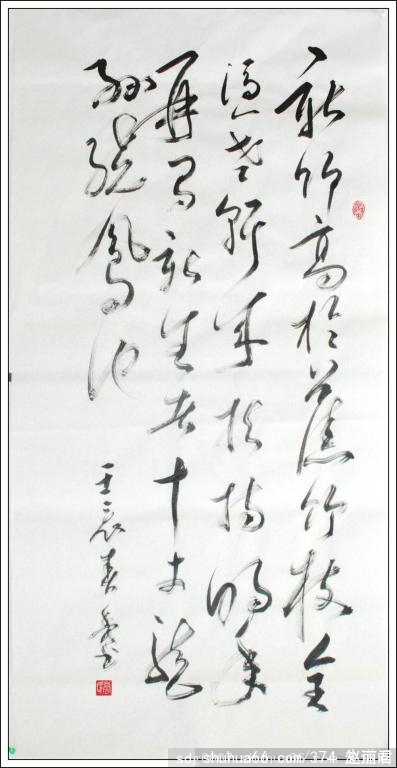 新竹高於舊竹枝全
憑老幹為扶持明年
再有新生者十丈龍
孫繞鳳池
壬辰春